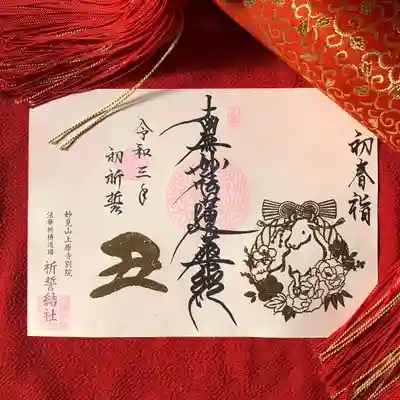 初春詣
南無妙法蓮華経
令和三年
初祈誓
丑
妙見山上原寺別院
法華祈祷道場
祈誓結社